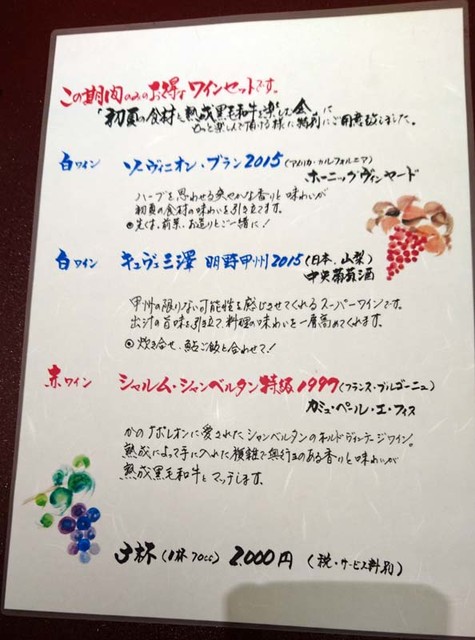 この期間のみのお得なワインセットです。
「初夏の食材と熟成黒毛和牛を楽しむ会」に
もっと楽しんで頂ける様に特別にご用意致しました。
白ワイン ソーヴィニオン・ブラン2015(アメリカ・カルフォルニア)
ホーニッグヴィンヤード
ハーブを思わせる爽やかな香りと味わいが
初夏の食材の味わいを引き立てます。
◎先付、前菜、お造りとご一緒に!
白ワイン キュヴェ三澤 明野甲州2015(日本、山梨)
中央葡萄酒
甲州の限りない可能性を感じさせてくれるスーパーワインです。
出汁の旨味を引き立て、料理の味わいを一層高めてくれます。
◎炊き合せ、鮎ご飯と合わせて!
赤ワイン シャルム・シャンベルタン特級1997(フランス・ブルゴーニュ)
カミュ・ペール・エ・フィス
かのナポレオンに愛されたシャンベルタンのオールドヴィンテージワイン。
熟成によって手に入れた複雑で奥行きのある香りと味わいが
熟成黒毛和牛とマッチします。
3杯(1杯70cc) 2,000円(税・サービス料別)